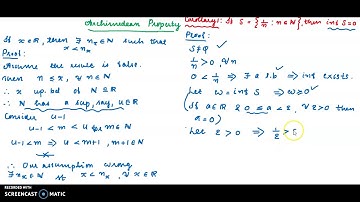 Archimedean Property
If x ∈ ℝ, then ∃ n_x ∈ ℕ such that
x < n_x
Proof:
Assume the result is false.
then n ≤ x, ∀ n ∈ ℕ
∴ x up. bd of ℕ ⊆ ℝ
∴ ℕ has a sup, say, u ∈ ℝ
Consider u-1
u-1 < m < u for m ∈ ℕ
u-1 < m ⇒ u < m+1, m+1 ∈ ℕ
∴ Our assumption wrong
∃ n_x ∈ ℕ st x < n_x, ∀ x ∈ ℝ
Corollary 1: If S = {1/n : n ∈ ℕ}, then inf S = 0
Proof:
S ≠ φ
1/n > 0, ∀ n
0 < 1/n ⇒ ∃ a l.b ⇒ inf exists.
Let w = inf S ⇒ w ≥ 0
(If a ∈ ℝ & 0 ≤ a < ε, ∀ ε > 0 then
a = 0)
Let ε > 0 ⇒ 1/ε > 
RECORDED WITH
SCREENCAST-O-MATIC